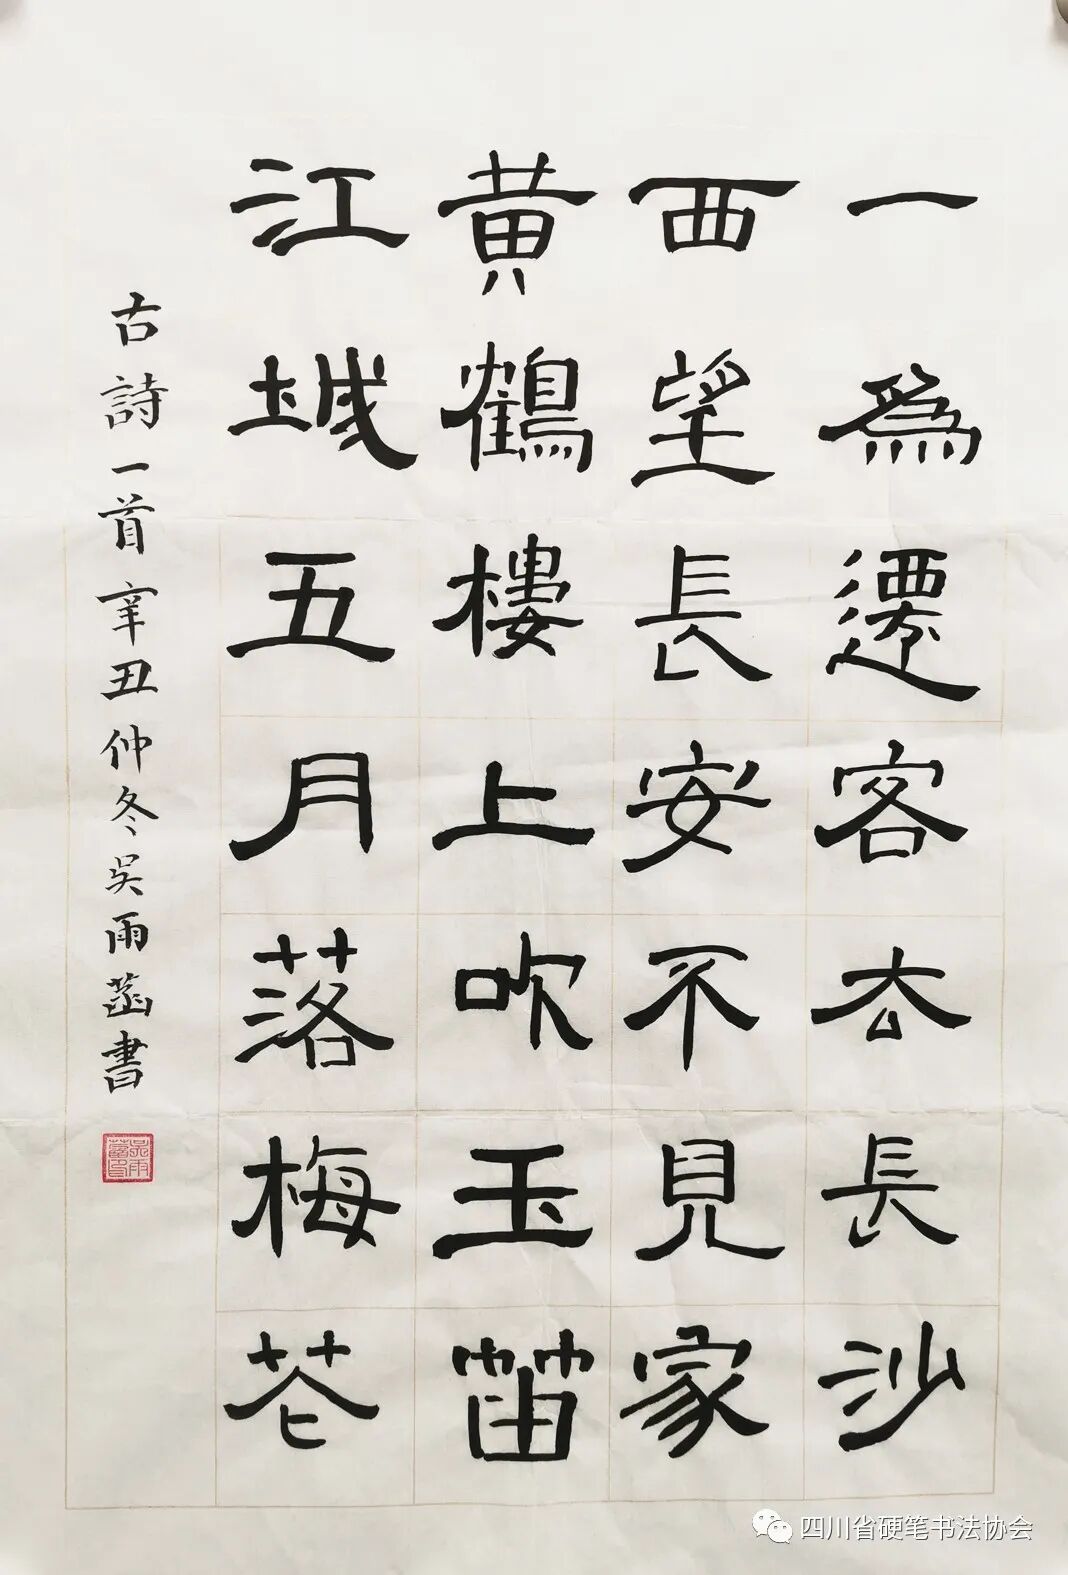 一爲遷客去長沙
西望長安不見家
黄鶴樓上吹玉笛
江城五月落梅花
古詩一首辛丑仲冬吴雨菡書
四川省硬笔书法协会